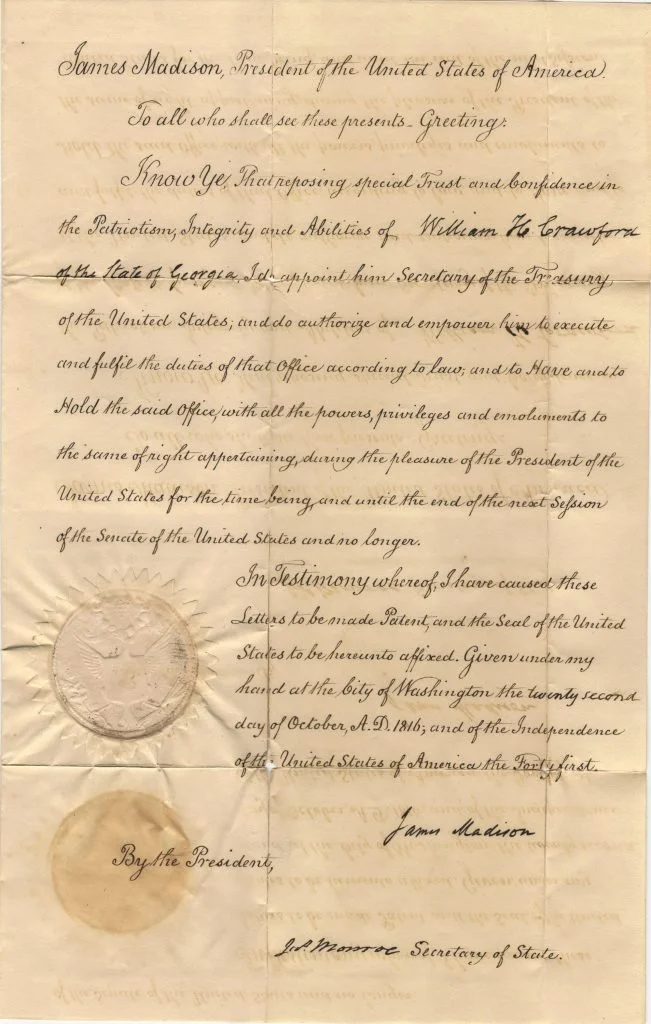 James Madison, President of the United States of America.
To all who shall see these presents - Greeting:
Know Ye, That reposing special Trust and Confidence in
the Patriotism, Integrity and Abilities of William H. Crawford
of the State of Georgia, I do appoint him Secretary of the Treasury
of the United States; and do authorize and empower him to execute
and fulfil the duties of that Office according to law; and to Have and to
Hold the said Office, with all the powers, privileges and emoluments to
the same of right appertaining, during the pleasure of the President of the
United States for the time being, and until the end of the next Session
of the Senate of the United States and no longer.
In Testimony whereof, I have caused these
Letters to be made Patent, and the Seal of the United
States to be hereunto affixed. Given under my
hand at the City of Washington the twenty second
day of October, A.D. 1816; and of the Independence
of the United States of America the Forty first.
James Madison
By the President,
Jas. Monroe Secretary of State.